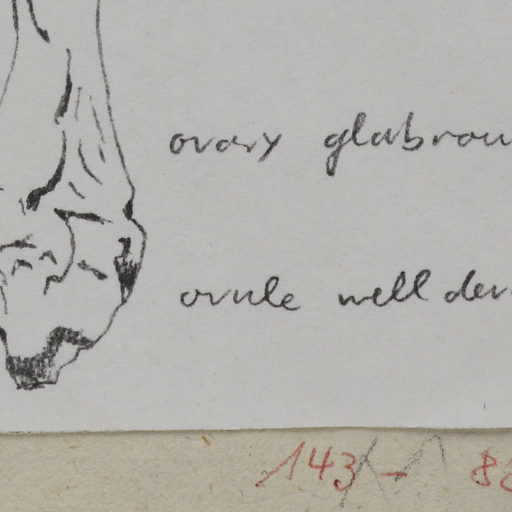 ovary glabrou
ovule well dev
143 - 8